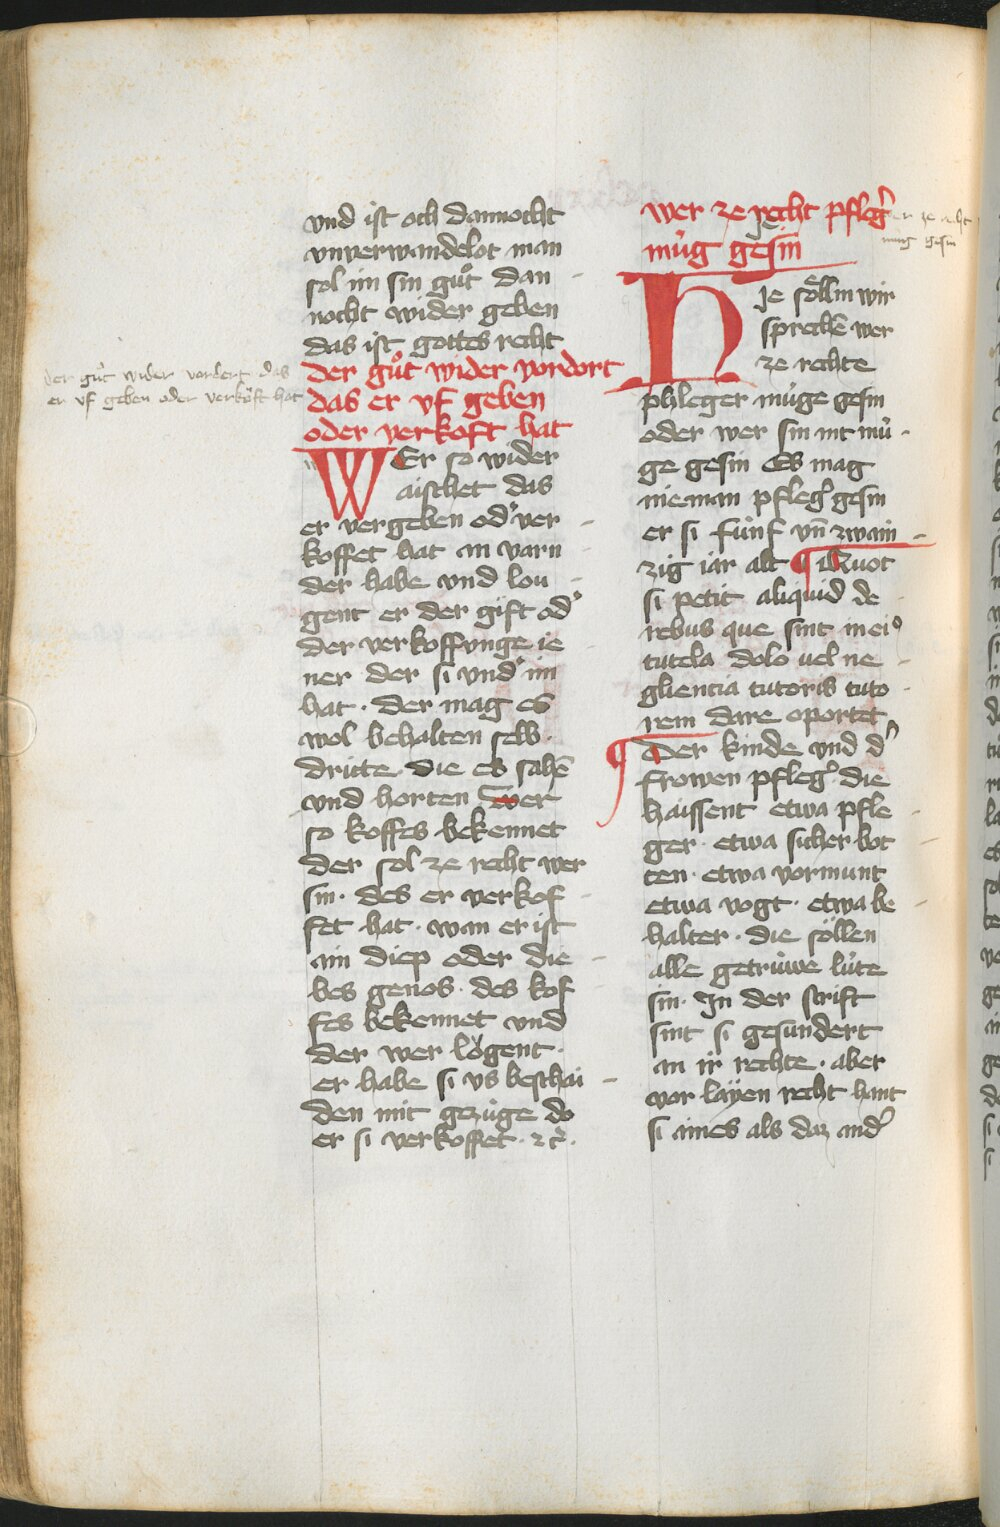 vnd ist och dannocht
vnverwandelot man
sol im sin guͦt dan -
nocht wider geben
das ist gottes recht
der guͦt wider vordort
das er vf geben
oder verkoft hat
WEr so wider
aischet das
er vergeben od' ver -
koffet hat an varn -
der habe vnd lou -
gent er der gift od'
der verkoffvnge ie -
ner der si vnd' im
hat · der mag es
wol behalten selb ·
dritte · die es sahē
vnd horten wer
so koffes bekennet
der sol ze recht wer
sin · des er verkof -
fet hat · wan er ist
ain diep oder die -
bes genos · des kof -
fes bekennet vnd
der wer lögent ·
er habe si vs beschai -
den mit gezuͤge do
er si verkoffet · ⁊c̄ ·
der guͦt wider vordert das
er vf geben oder verkoͧft hat
wer ze recht pfleg'
muͤg gesin
wer ze recht
muͤg gesin
je
HJe söllm wir
sprechē wer
ze rechte
phleger muͤge gesin
oder wer sin nit muͤ -
ge gesin Es mag
nieman pfleg' gesin
er si fuͤnf vn̄ zwain -
zig iar alt ¶ Quot
si petit aliquid de -
rebus que sint in ei⁹
tutela dolo uel ne -
gliencia tutoris tuto -
rem dare oportet
¶ Der kinde vnd d'
frowen pfleg' · die
haissent etwa pfle -
ger · etwa sicher bot -
ten · etwa vormunt
etwa vogt · etwa be -
halter · die söllen
alle getruͤwe luͤte
sin · In der scrift
sint si gesundert
an ir rechte · aber
vor laÿen recht hant
si aines als daz and'